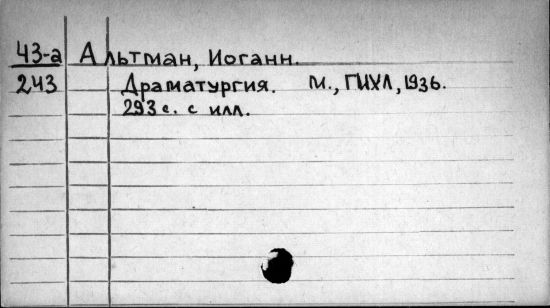 43-а Альтман, Иоганн.
243 Драматургия. М., ГИХЛ, 1936.
293 с. с илл.